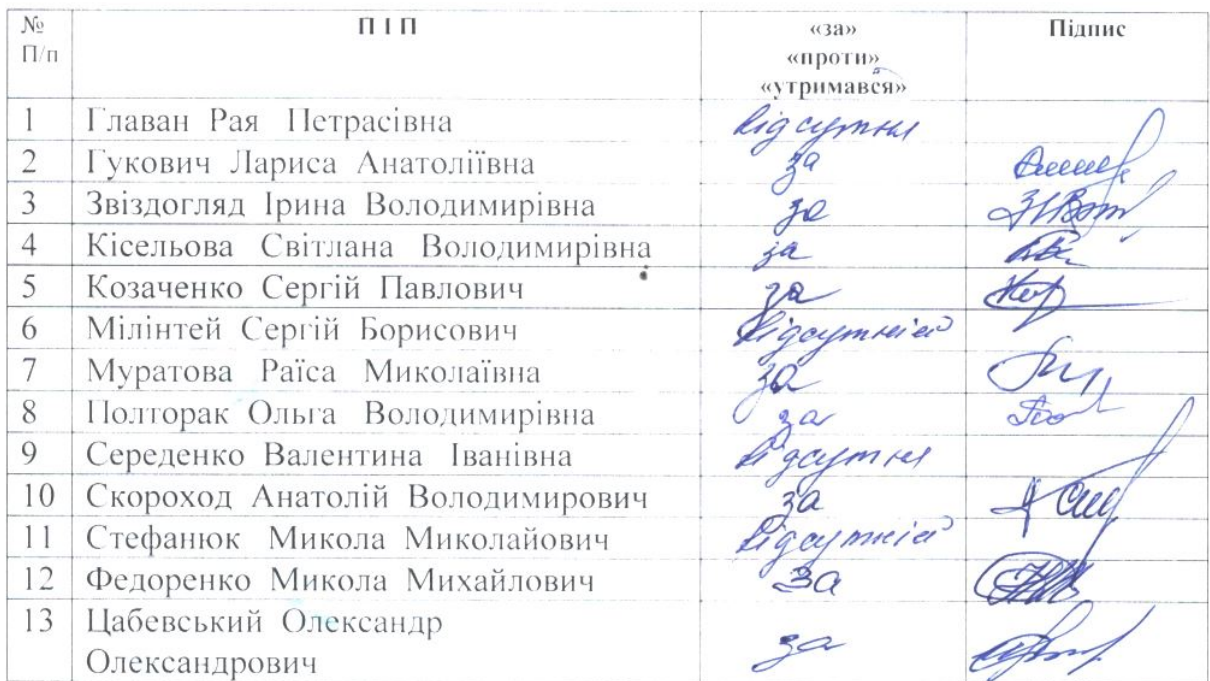 № П/п П І П «за» «проти» «утримався» Підпис
1 Главан Рая Петрасівна відсутня
2 Гукович Лариса Анатоліївна за
3 Звіздогляд Ірина Володимирівна за
4 Кісельова Світлана Володимирівна за
5 Козаченко Сергій Павлович за
6 Мілінтей Сергій Борисович відсутній
7 Муратова Раїса Миколаївна за
8 Полторак Ольга Володимирівна за
9 Середенко Валентина Іванівна відсутня
10 Скороход Анатолій Володимирович за
11 Стефанюк Микола Миколайович відсутній
12 Федоренко Микола Михайлович за
13 Цабевський Олександр
Олександрович за